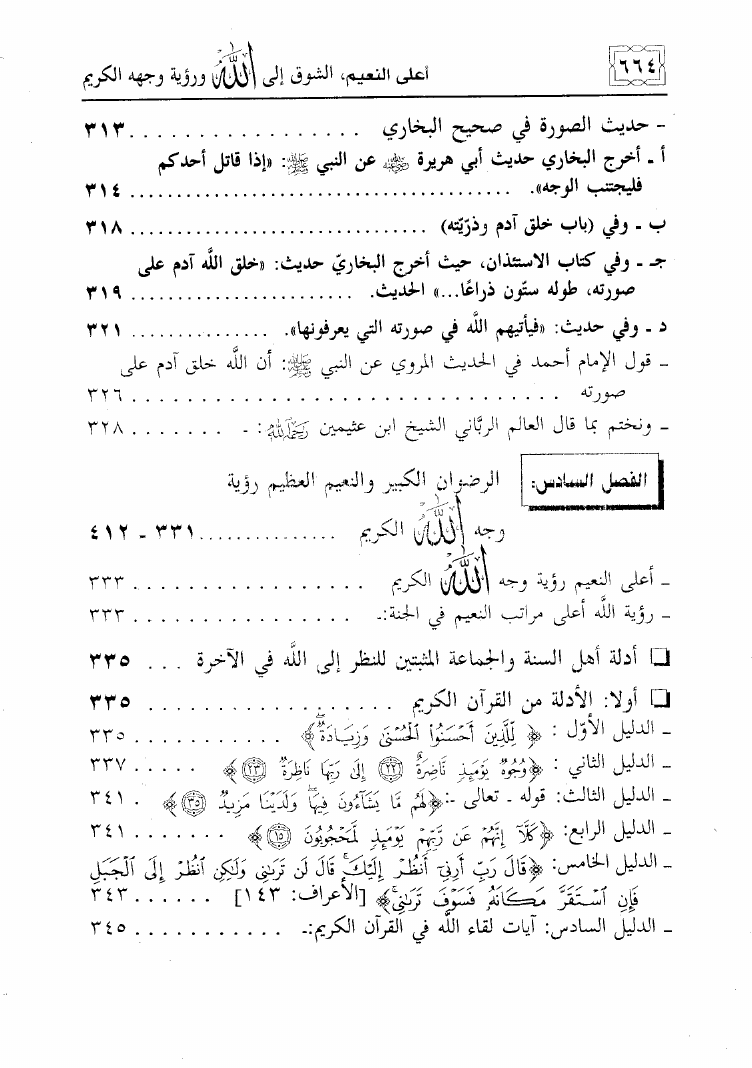 ٦٦٤
أعلى النعيم، الشوق إلى الله ورؤية وجهه الكريم
- حديث الصورة في صحيح البخاري ................. ٣١٣
أ - أخرج البخاري حديث أبي هريرة رضي الله عنه عن النبي ﷺ: «إذا قاتل أحدكم
فليجتنب الوجه». ................................ ٣١٤
ب - وفي (باب خلق آدم وذرّيّته) ........................ ٣١٨
جـ - وفي كتاب الاستئذان، حيث أخرج البخاريّ حديث: «خلق اللَّه آدم على
صورته، طوله ستّون ذراعًا...» الحديث. .................... ٣١٩
د - وفي حديث: «فيأتيهم اللَّه في صورته التي يعرفونها». .............. ٣٢١
- قول الإمام أحمد في الحديث المروي عن النبي ﷺ: أن اللَّه خلق آدم على
صورته ................................ ٣٢٦
- ونختم بما قال العالم الربَّاني الشيخ ابن عثيمين رحمه الله: - ....... ٣٢٨
الفصل السادس: الرضوان الكبير والنعيم العظيم رؤية
وجه الله الكريم .............. ٣٣١ - ٤١٢
- أعلى النعيم رؤية وجه الله الكريم ................. ٣٣٣
- رؤية اللَّه أعلى مراتب النعيم في الجنة:- ................. ٣٣٣
❑ أدلة أهل السنة والجماعة المثبتين للنظر إلى اللَّه في الآخرة ... ٣٣٥
❑ أولا: الأدلة من القرآن الكريم .................. ٣٣٥
- الدليل الأوّل : ﴿ لِّلَّذِينَ أَحْسَنُوا۟ ٱلْحُسْنَىٰ وَزِيَادَةٌ ۖ ﴾ ........... ٣٣٥
- الدليل الثاني : ﴿وُجُوهٌ يَوْمَئِذٍ نَّاضِرَةٌ ﴿٢٢﴾ إِلَىٰ رَبِّهَا نَاظِرَةٌ ﴿٢٣﴾﴾ ..... ٣٣٧
- الدليل الثالث: قوله - تعالى -:﴿لَهُم مَّا يَشَآءُونَ فِيهَا ۖ وَلَدَيْنَا مَزِيدٌ ﴿٣٥﴾﴾ . ٣٤١
- الدليل الرابع: ﴿كَلَّآ إِنَّهُمْ عَن رَّبِّهِمْ يَوْمَئِذٍ لَّمَحْجُوبُونَ ﴿١٥﴾﴾ ....... ٣٤١
- الدليل الخامس: ﴿قَالَ رَبِّ أَرِنِىٓ أَنظُرْ إِلَيْكَ ۚ قَالَ لَن تَرَىٰنِى وَلَٰكِنِ ٱنظُرْ إِلَى ٱلْجَبَلِ
فَإِنِ ٱسْتَقَرَّ مَكَانَهُۥ فَسَوْفَ تَرَىٰنِى ۚ﴾ [الأعراف: ١٤٣] ...... ٣٤٣
- الدليل السادس: آيات لقاء اللَّه في القرآن الكريم:- ............ ٣٤٥